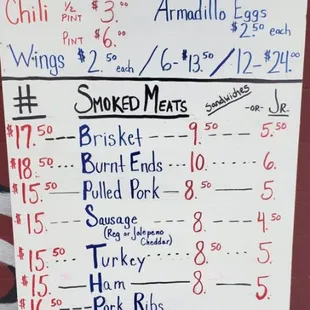 Chili ½ PINT $3.00 Armadillo Eggs
PINT $6.00 $2.50 each
Wings $2.50 each / 6-$13.50 / 12-$24.00
# SMOKED MEATS Sandwiches -OR- JR.
$17.50 --- Brisket - 9.50 --- 5.50
$18.50 --- Burnt Ends - 10. --- 6.
$15.50 --- Pulled Pork - 8.50 --- 5.
$15. --- Sausage --- 8. --- 4.50
(Reg or Jalepeno Cheddar)
$15.50 --- Turkey --- 8.50 --- 5.
$15. --- Ham --- 8. --- 5.
$16.50 --- Pork Ribs